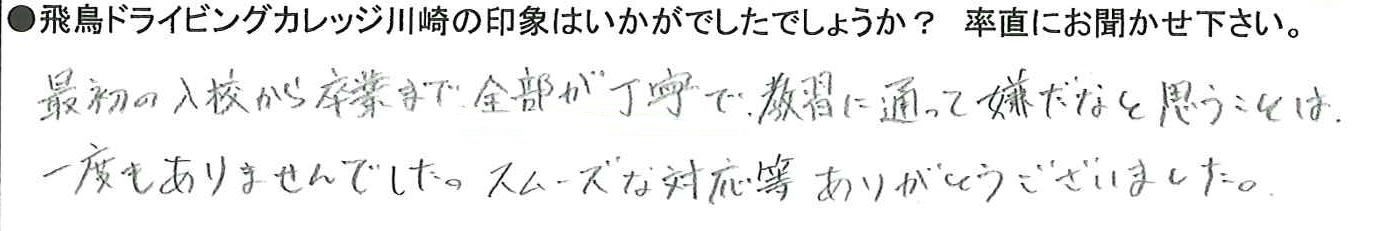 ●飛鳥ドライビングカレッジ川崎の印象はいかがでしたでしょうか？ 率直にお聞かせ下さい。
最初の入校から卒業まで全部が丁寧で、教習に通って嫌だなと思うことは、
一度もありませんでした。スムーズな対応等ありがとうございました。